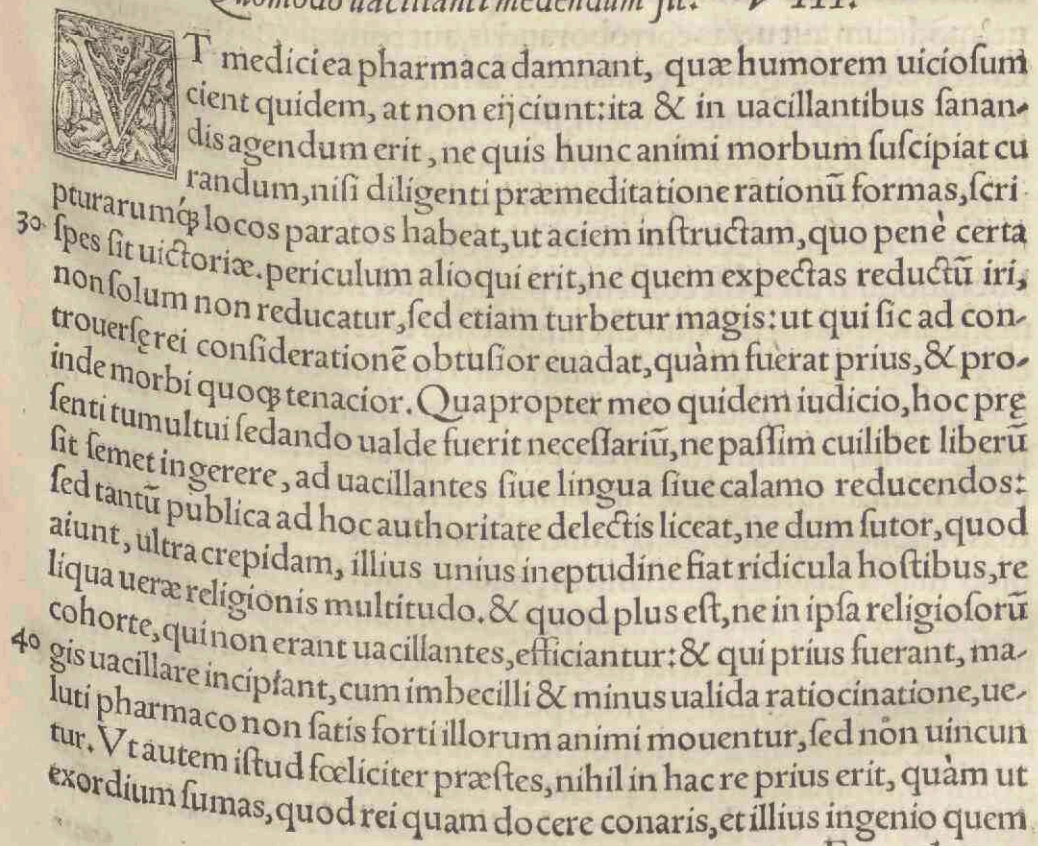 Quomodo uacillanti medendum sit.
VT medici ea pharmaca damnant, quæ humorem uiciosum
cient quidem, at non eijciunt: ita & in uacillantibus sanan-
dis agendum erit, ne quis hunc animi morbum suscipiat cu
randum, nisi diligenti præmeditatione rationũ formas, scri
pturarumq́ꝫ locos paratos habeat, ut aciem instructam, quo penè certa
30 spes sit uictoriæ. periculum alioqui erit, ne quem expectas reductũ iri,
non solum non reducatur, sed etiam turbetur magis: ut qui sic ad con-
trouersę rei consideratione᷉ obtusior euadat, quàm fuerat prius, & pro-
inde morbi quoqꝫ tenacior. Quapropter meo quidem iudicio, hoc prę
senti tumultui sedando ualde fuerit necessariũ, ne passim cuilibet liberũ
sit semet ingerere, ad uacillantes siue lingua siue calamo reducendos:
sed tantũ publica ad hoc authoritate delectis liceat, ne dum sutor, quod
aiunt, ultra crepidam, illius unius ineptudine fiat ridicula hostibus, re
liqua ueræ religionis multitudo. & quod plus est, ne in ipsa religiosorũ
cohorte, qui non erant uacillantes, efficiantur: & qui prius fuerant, ma-
40 gis uacillare incipiant, cum imbecilli & minus ualida ratiocinatione, ue-
luti pharmaco non satis forti illorum animi mouentur, sed non uincun
tur. Vt autem istud fœliciter præstes, nihil in hac re prius erit, quàm ut
exordium sumas, quod rei quam docere conaris, et illius ingenio quem